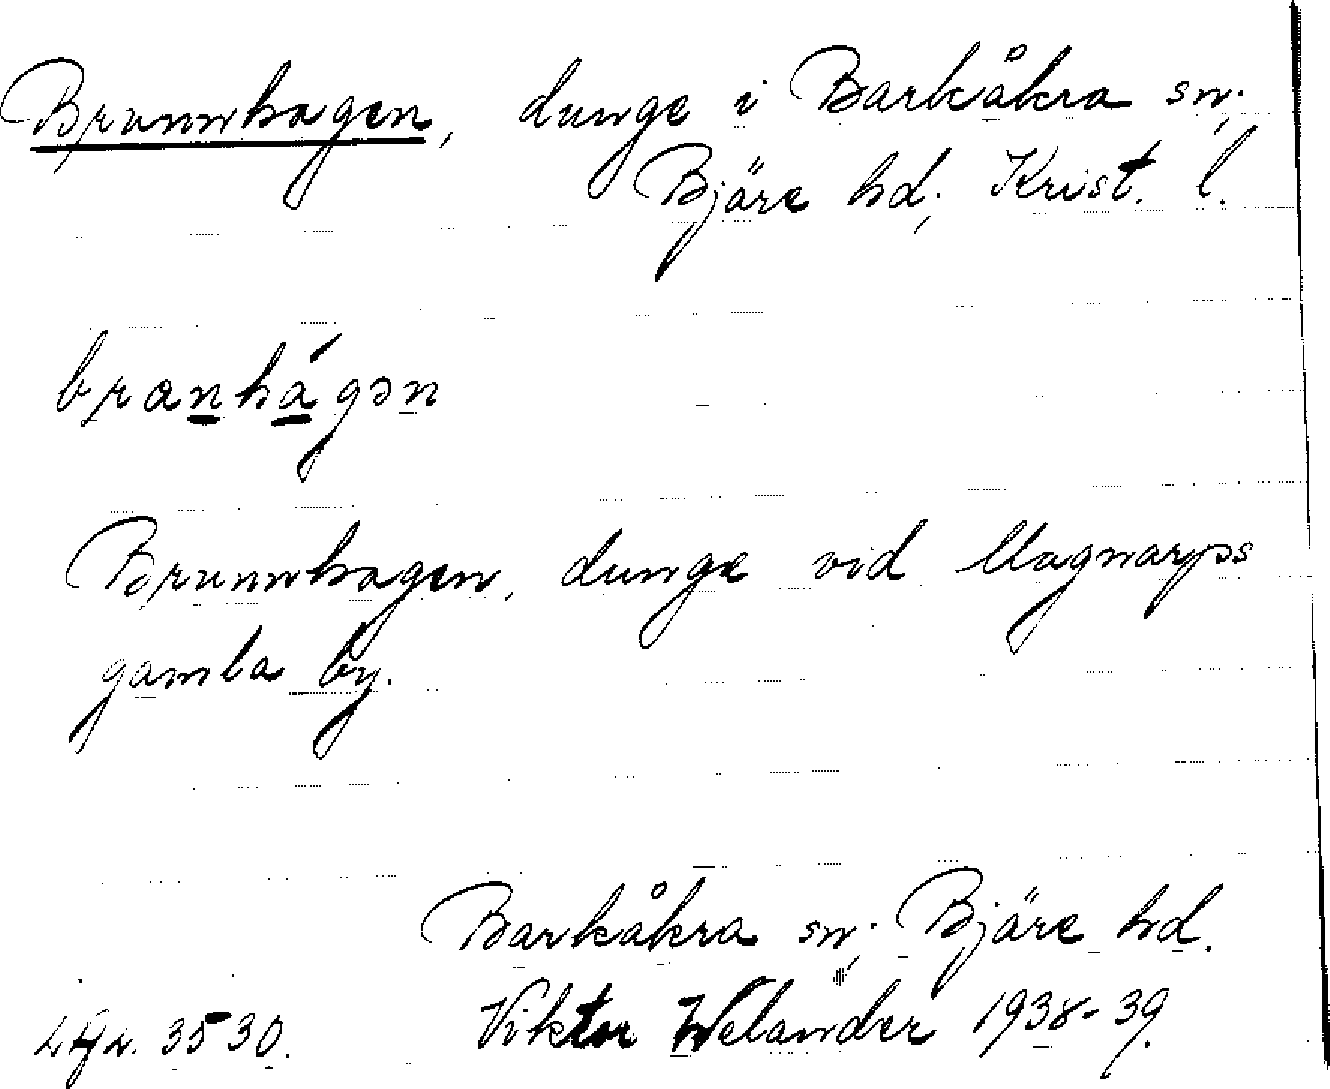 Brunnhagen, dunge i Barkåkra sn;
Bjäre hd; Krist. l.
branhágən
Brunnhagen, dunge vid Magnarps
gamla by.
Barkåkra sn; Bjäre hd.
3530. Viktor Welander 1938-39.